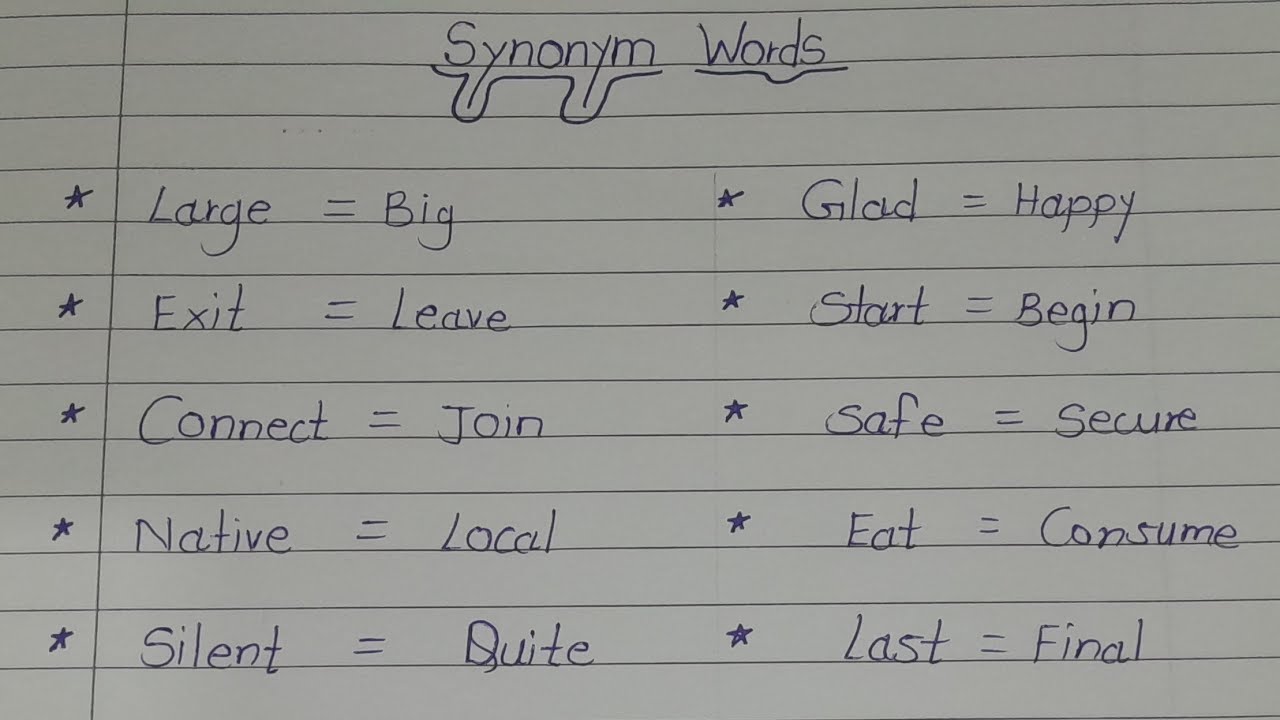 Synonym Words
* Large = Big * Glad = Happy
* Exit = Leave * Start = Begin
* Connect = Join * Safe = Secure
* Native = Local * Eat = Consume
* Silent = Quite * Last = Final